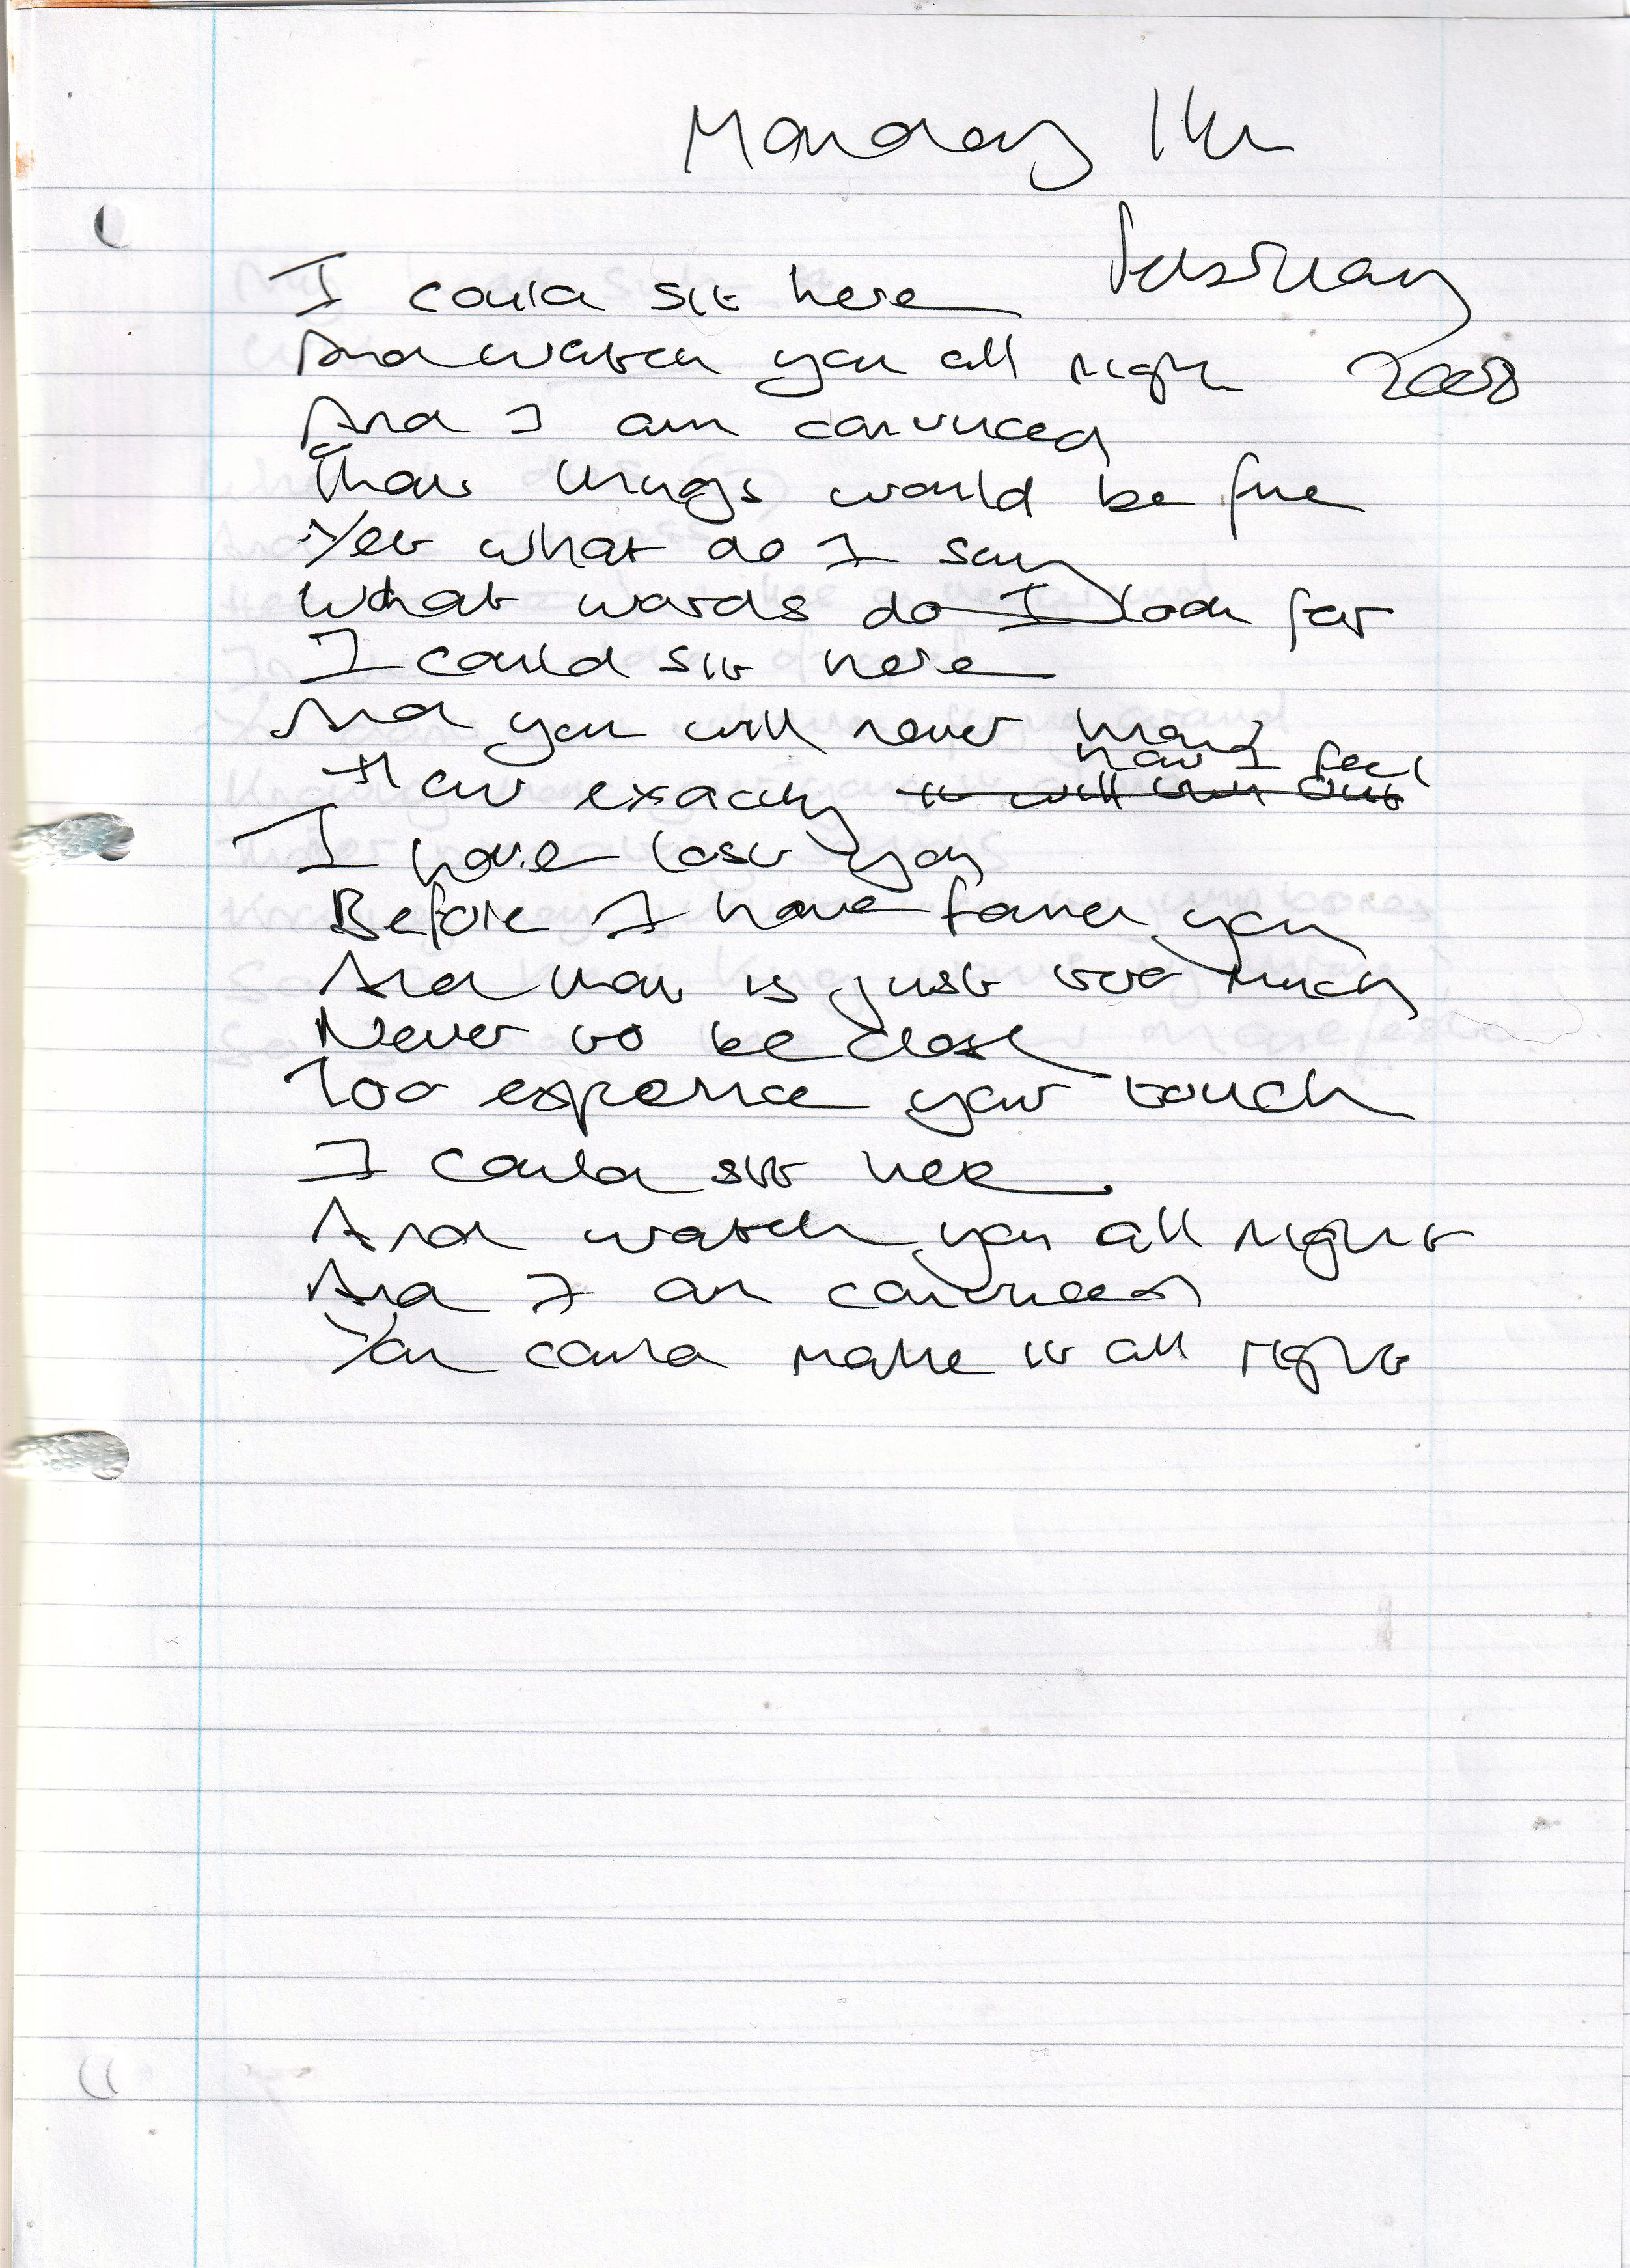 Monday 11th
February
2008
I could sit here
And watch you all night
And I am convinced
That things would be fine
Yet what do I say
What words do I look for
I could sit here
And you will never know
how I feel
How exactly it will turn out
I have lost you
Before I have found you
And that is just too much
Never to be close
Too experience your touch
I could sit here
And watch you all night
And I am convinced
You could make it all right